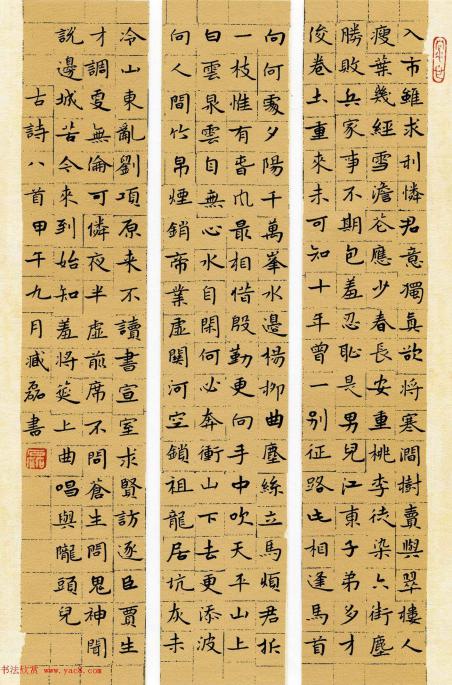 入市雖求利憐君意獨真欲將寒澗樹賣與翠樓人
瘦葉幾經雪澹花應少春長安重桃李徒染六街塵
勝敗兵家事不期包羞忍恥是男兒江東子弟多才
俊卷土重來未可知十年曾一別征路此相逢馬首
向何處夕陽千萬峯水邊楊柳曲塵絲立馬煩君折
一枝惟有春風最相惜殷勤更向手中吹天平山上
白雲泉雲自無心水自閑何必奔衝山下去更添波
向人間竹帛煙銷帝業虛關河空鎖祖龍居坑灰未
冷山東亂劉項原來不讀書宣室求賢訪逐臣賈生
才調更無倫可憐夜半虛前席不問蒼生問鬼神聞
說邊城苦今來到始知羞將筵上曲唱與隴頭兒
古詩八首甲午九月臧磊書
书法欣赏 www.yac8.com